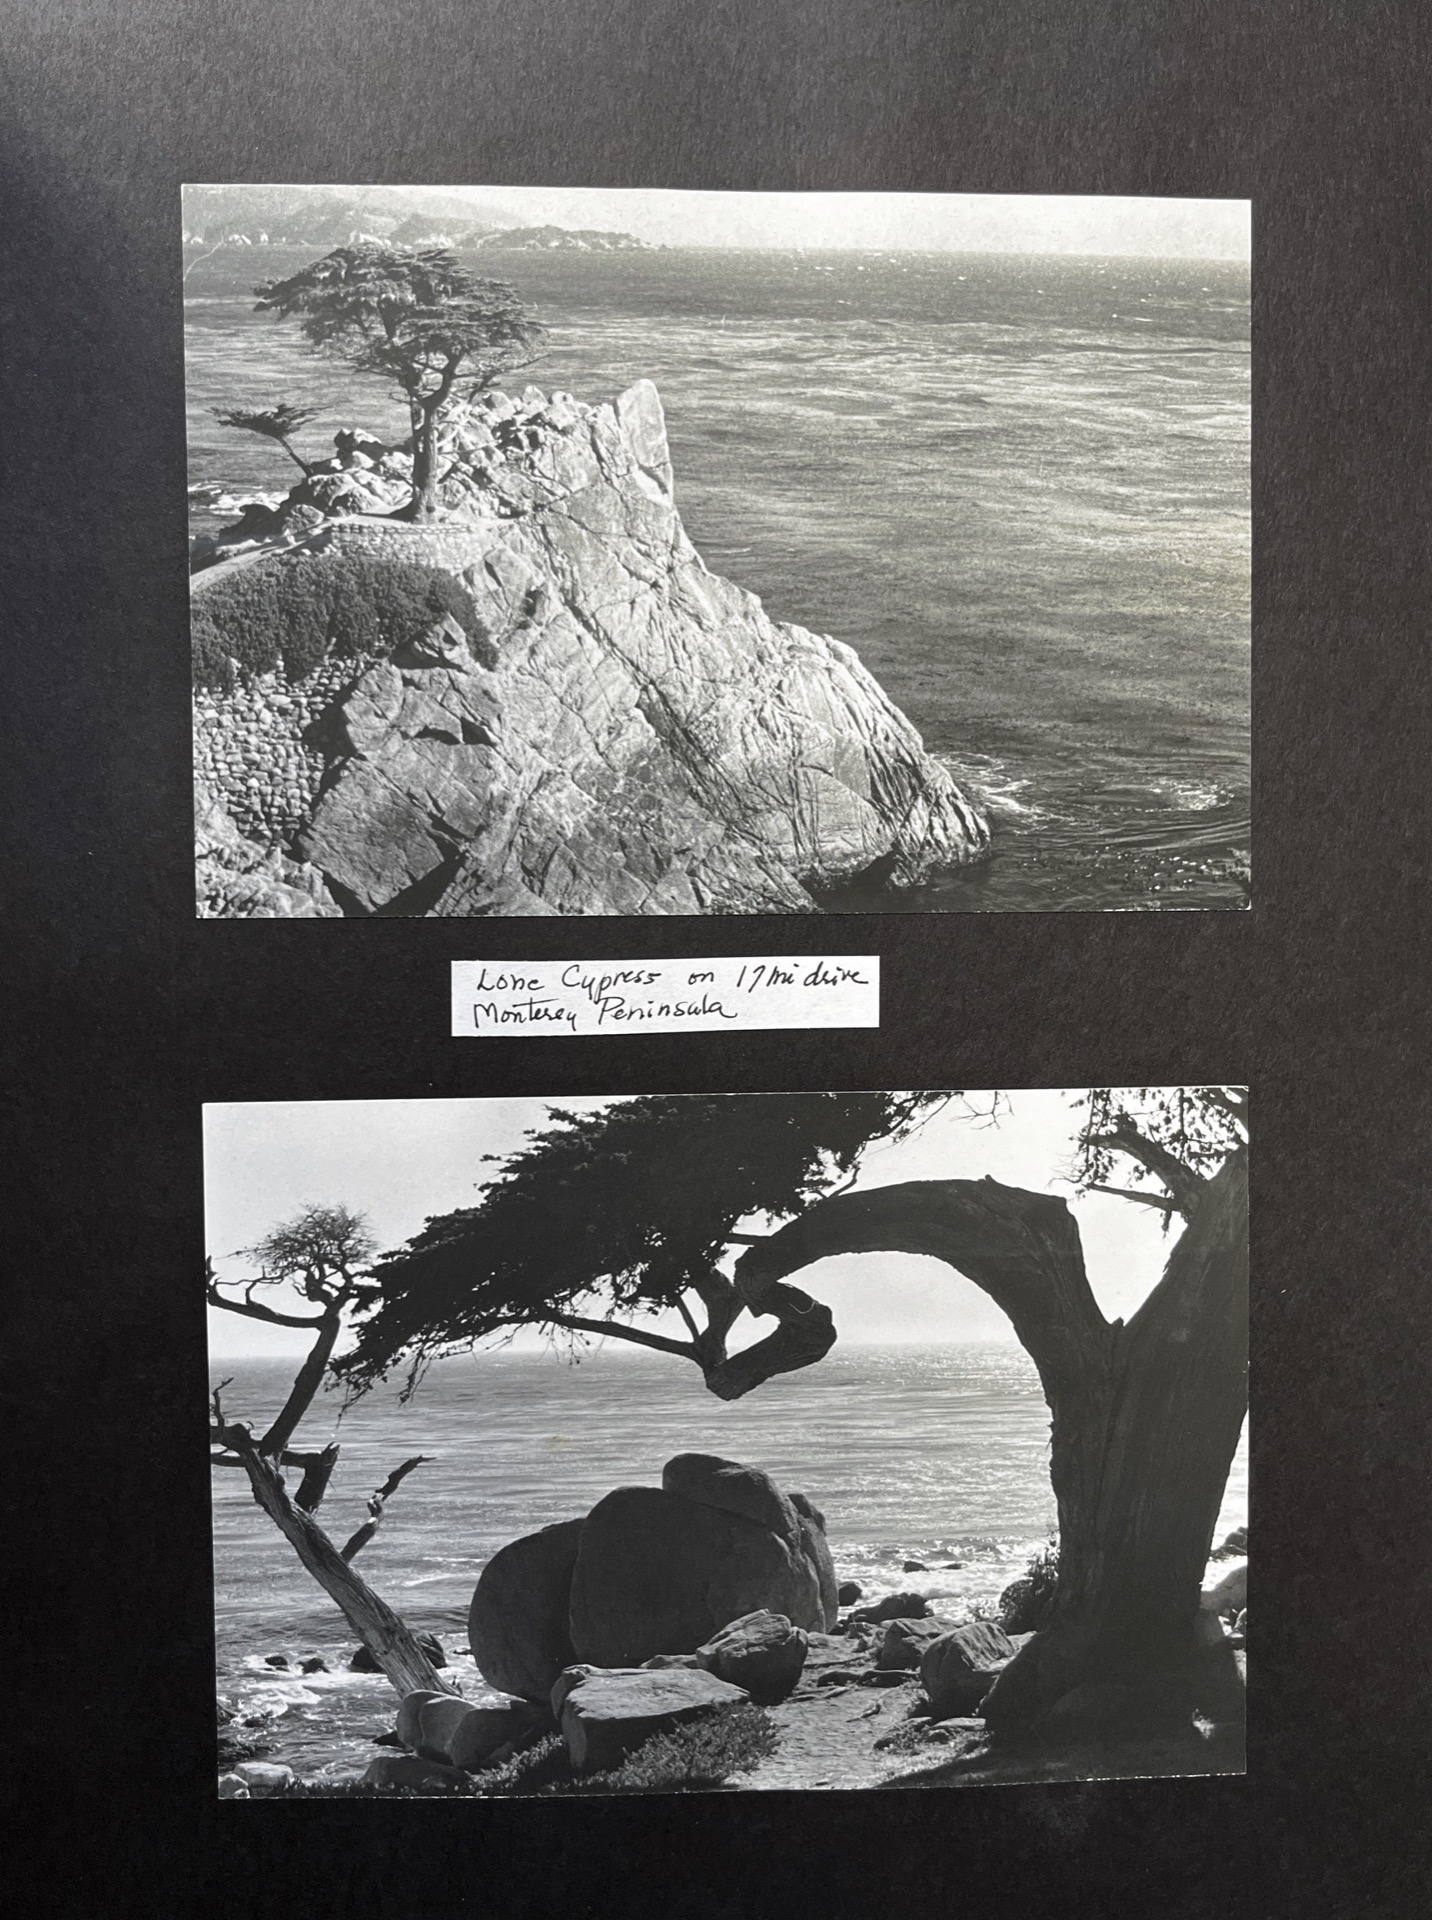 Lone Cypress on 17 mi drive
Monterey Peninsula